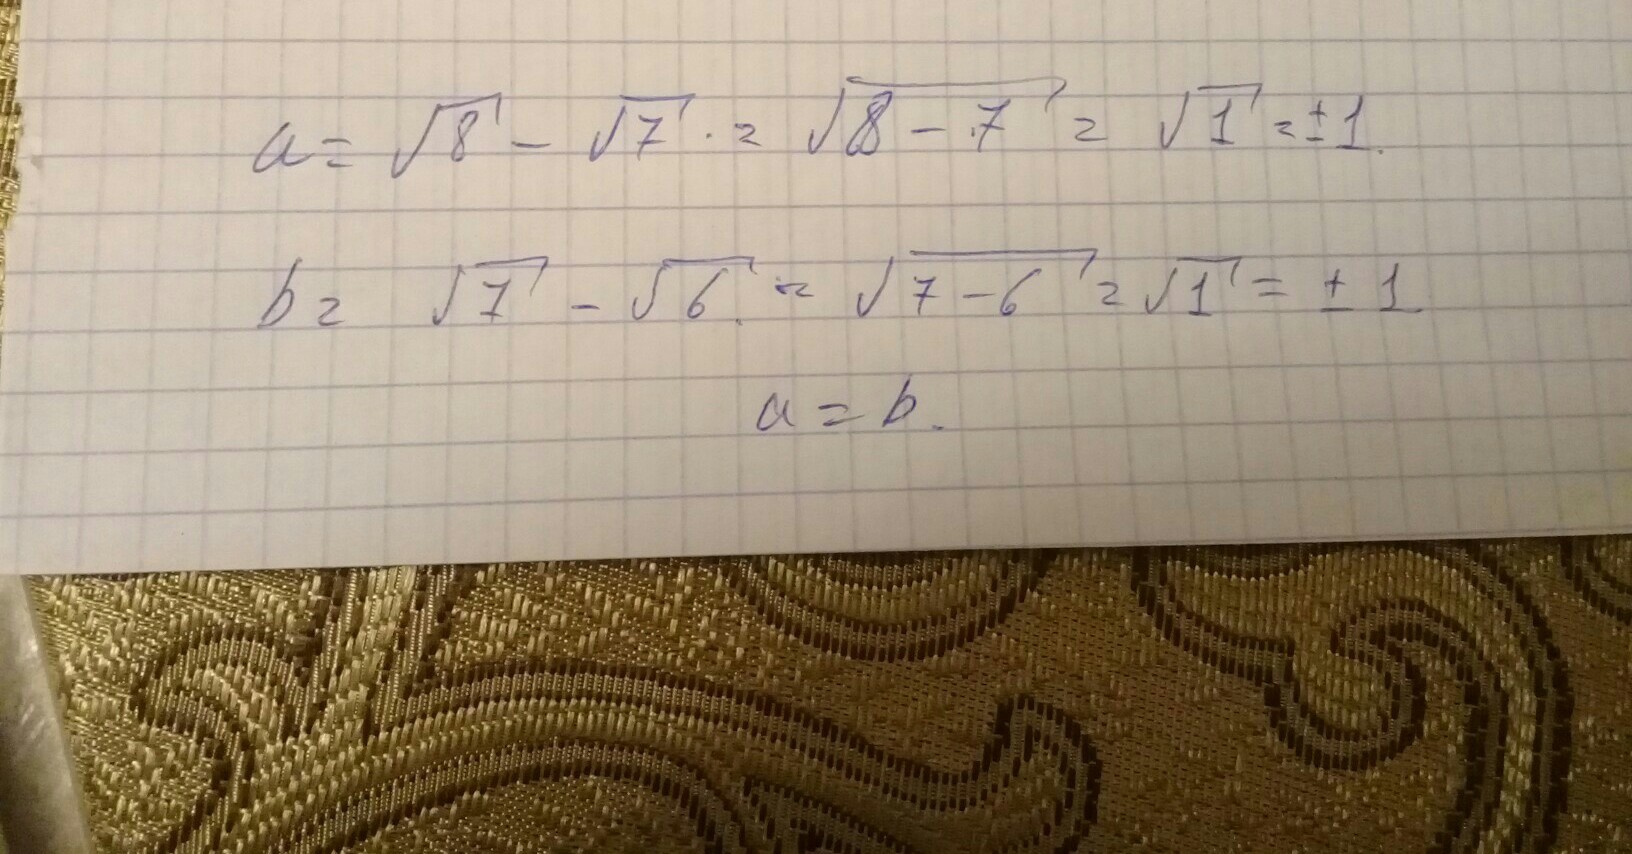 a = √8 - √7 = √8 - 7 = √1 = ±1.
b = √7 - √6 = √7 - 6 = √1 = ±1
a = b.